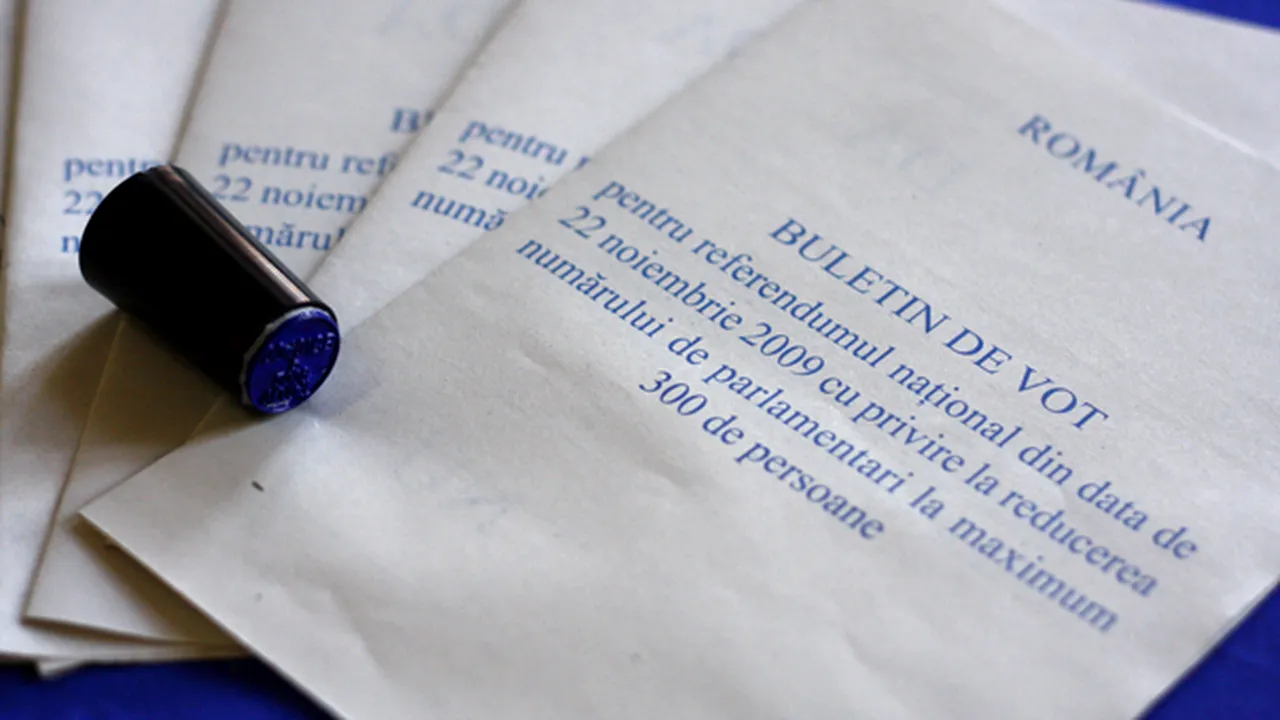 pentru
22
pentru ref
22 noiem
mărul
pentru
22 noie
numă
ROMÂNIA
BULETIN DE VOT
pentru referendumul național din data de
22 noiembrie 2009 cu privire la reducerea
numărului de parlamentari la maximum
300 de persoane